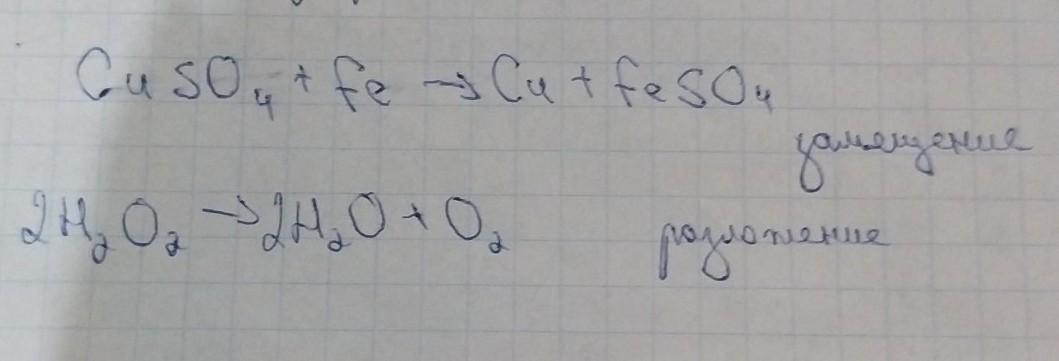 CuSO₄ + Fe → Cu + FeSO₄
замещение
2H₂O₂ → 2H₂O + O₂ разложение